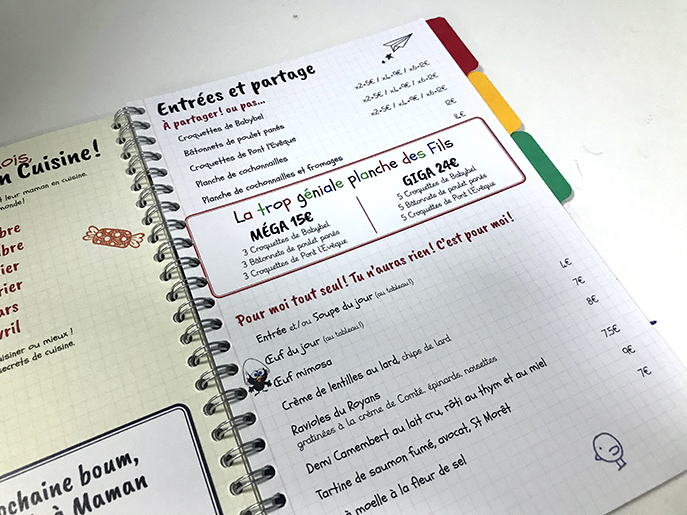 ois
n Cuisine !
t leur maman en cuisine.
monde !
bre
mbre
ier
rier
ars
vril
uisiner ou mieux !
secrets de cuisine.
ochaine boum,
à Maman
Entrées et partage
À partager ! ou pas...
Croquettes de Babybel x2•5€ / x4•9€ / x6•12€
Bâtonnets de poulet panés x2•5€ / x4•9€ / x6•12€
Croquettes de Pont l'Evêque x2•5€ / x4•9€ / x6•12€
Planche de cochonnailles 12€
Planche de cochonnailles et fromages 14€
La trop géniale planche des Fils
MÉGA 15€
3 Croquettes de Babybel
3 Bâtonnets de poulet panés
3 Croquettes de Pont l'Evêque
GIGA 24€
5 Croquettes de Babybel
5 Bâtonnets de poulet panés
5 Croquettes de Pont l'Evêque
Pour moi tout seul ! Tu n'auras rien ! C'est pour moi !
Entrée et/ou Soupe du jour (au tableau !)
Œuf du jour (au tableau !) 4€
Œuf mimosa 7€
Crème de lentilles au lard, chips de lard 8€
Ravioles du Royans
gratinées à la crème de Comté, épinards, noisettes 7,5€
Demi Camembert au lait cru, rôti au thym et au miel 9€
Tartine de saumon fumé, avocat, St Morêt 7€
à moelle à la fleur de sel